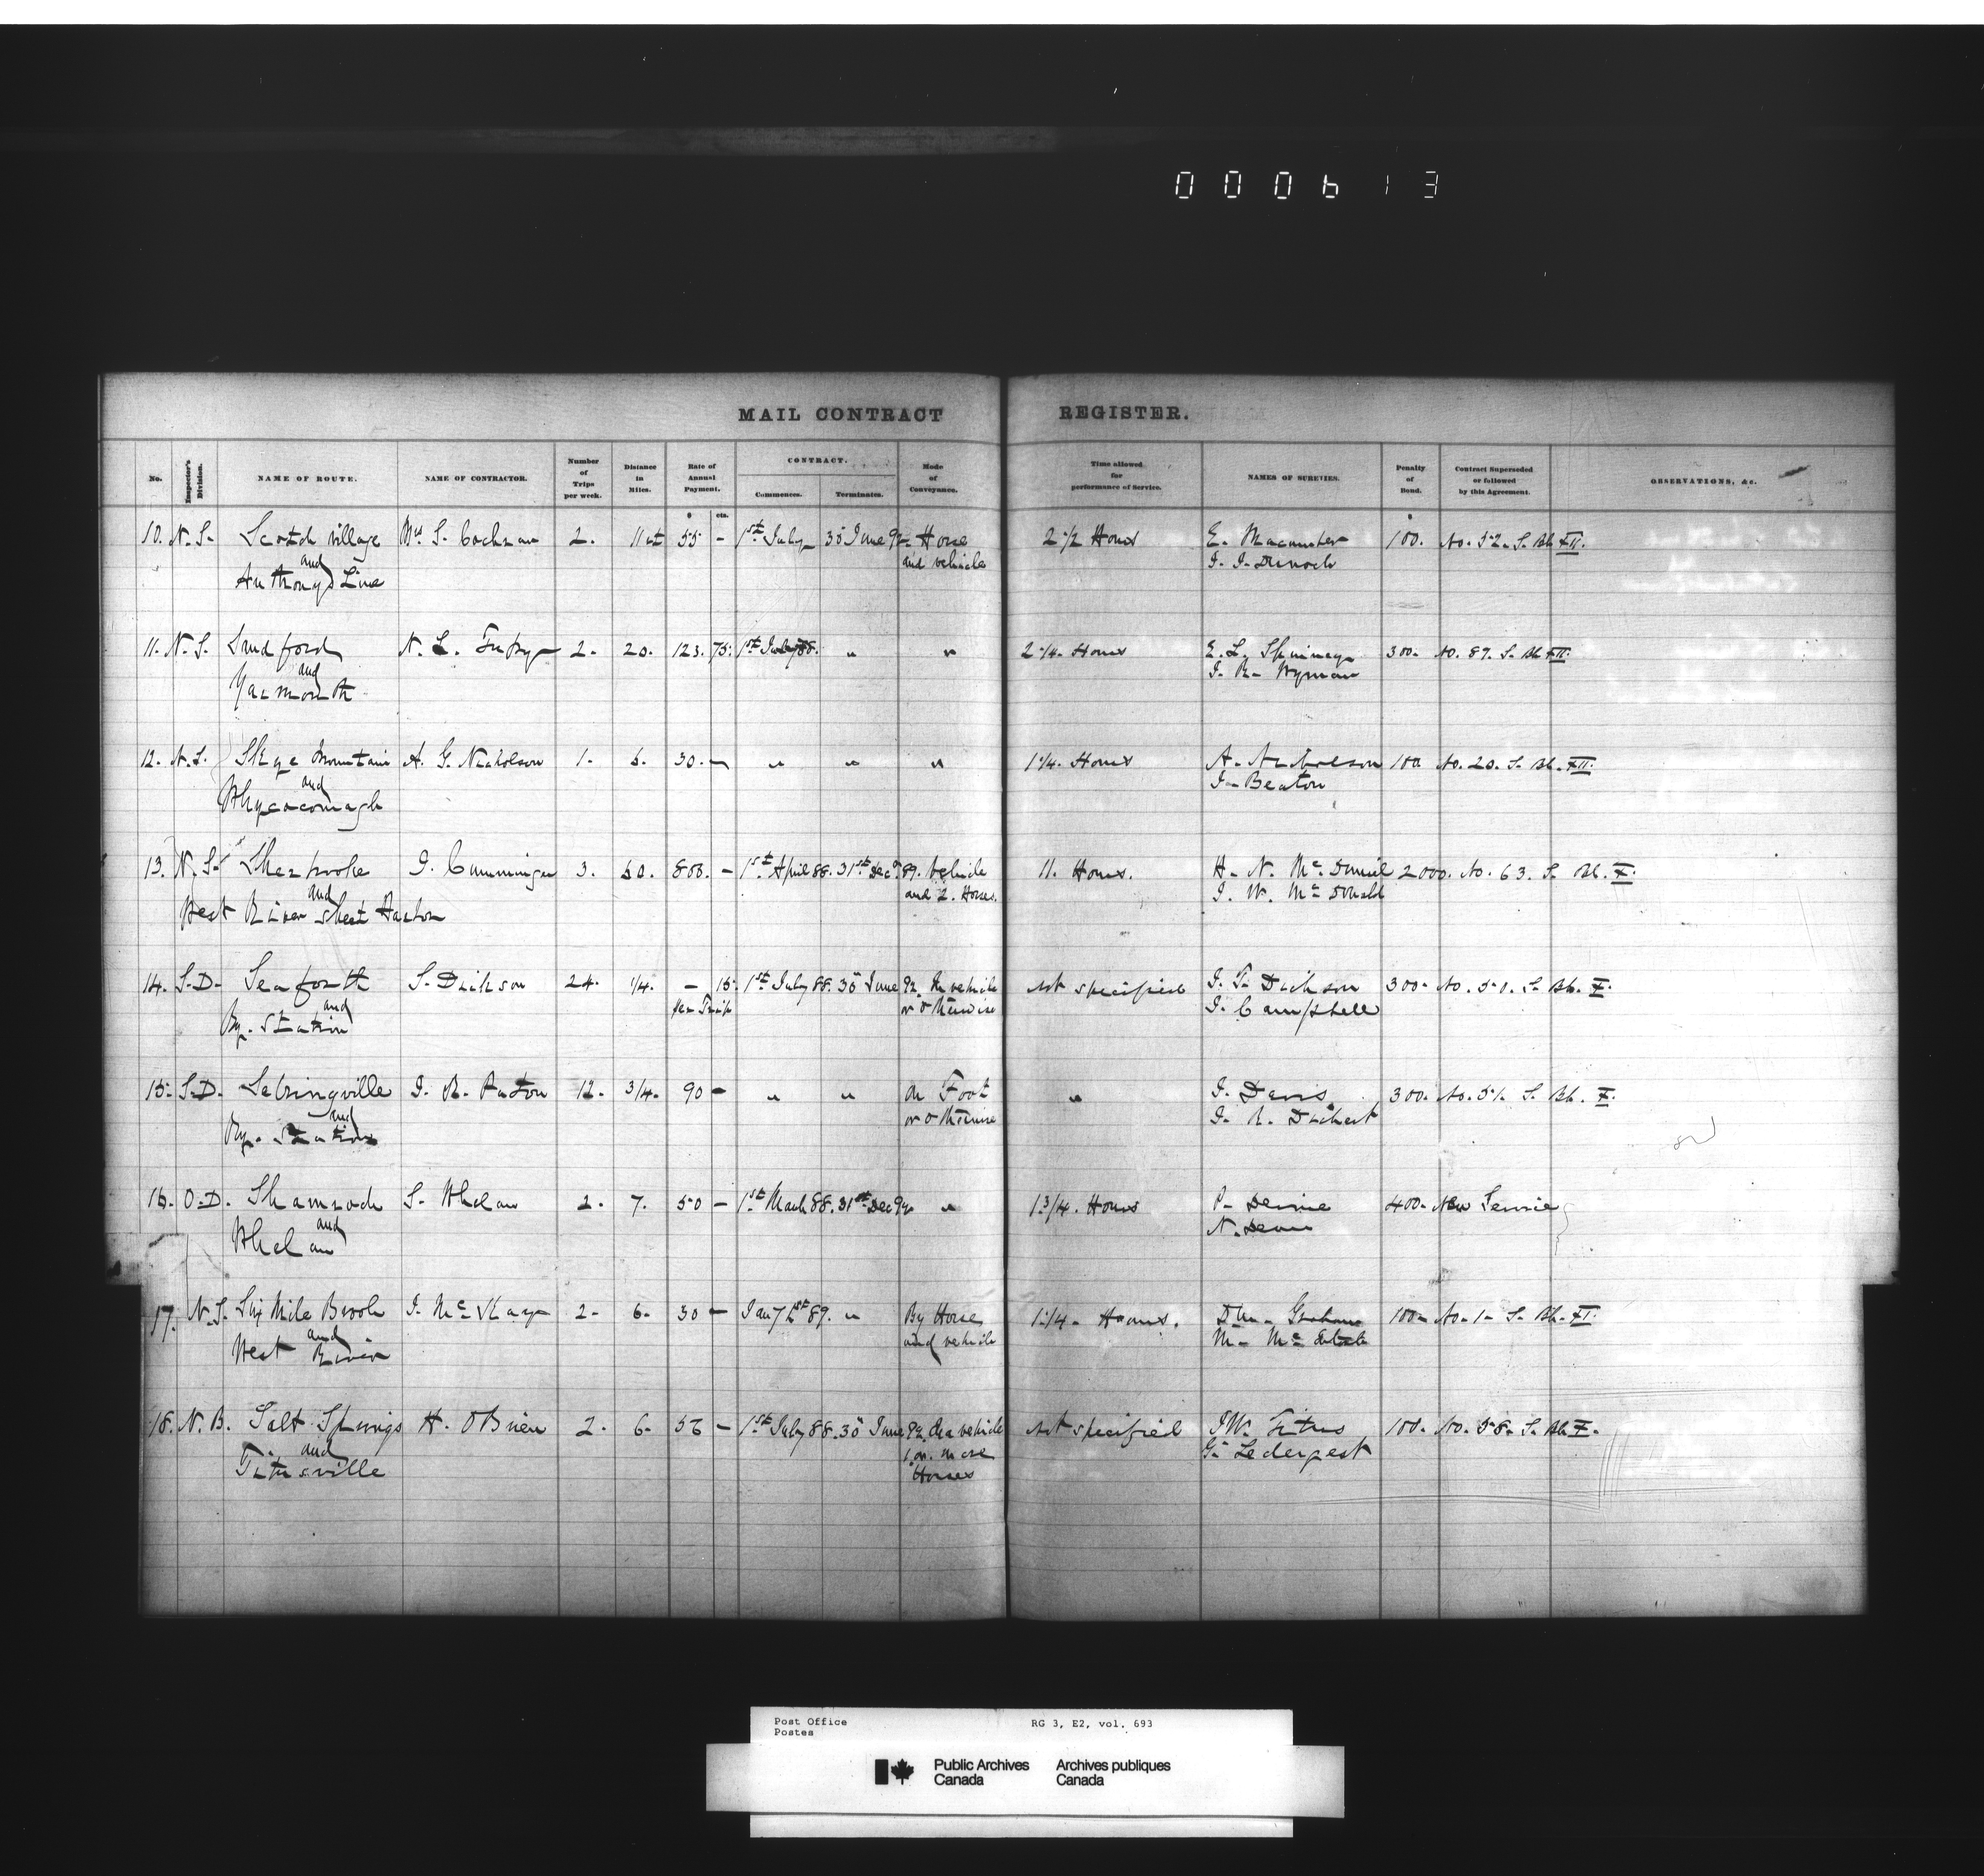 000613
MAIL CONTRACT REGISTER.
No. Inspector's Division. NAME OF ROUTE. NAME OF CONTRACTOR. Number of Trips per week. Distance in Miles. Rate of Annual Payment. CONTRACT. Commences. Terminates. Mode of Conveyance. Time allowed for performance of Service. NAMES OF SURETIES. Penalty of Bond. Contract Superseded or followed by this Agreement. OBSERVATIONS, &c.
$ cts. $
10. N.S. Scotch village Mrs S. Cochran 2. 11 55 - 1st July 30 June 92 Horse 2 1/2 Hours E. 100. No. 52. S. Bk XII.
and and vehicle
Anthony's Line
11. N.S. Sandford N. L. 2. 20. 123. 75. 1st July 88. " " 2 1/4. Hours E. L. Spinney 300. No. 89. S. Bk XII.
and J. R. Wyman
Yarmouth
12. N.S. Skye Mountain A. G. Nicholson 1. 5. 30. - " " " 1 1/4. Hours A. Nicholson 100 No. 20. S. Bk. XII.
and J. Beaton
Whycocomagh
13. N.S. Sherbrooke J. Cumminger 3. 50. 800. - 1st April 88. 31st Dec 89. Vehicle 11. Hours. H. N. McDaniel 2000. No. 63. S. Bk. X.
and and 2. Horses. J. W. McDonald
West River Sheet Harbor
14. S.D. Seaforth S. Dickson 24. 1/4. - 15. 1st July 88. 30 June 92. In vehicle Not specified J. T. Dickson 300. No. 50. S. Bk. X.
and per Trip or otherwise J. Campbell
Ry. Station
15. S.D. Sebringville J. R. Paton 12. 3/4. 90 - " " On Foot " J. Davis 300. No. 51. S. Bk. X.
and or otherwise
Ry. Station
16. O.D. Shamrock S. Whelan 2. 7. 50 - 1st March 88. 31st Dec 92 " 1 3/4. Hours P. Devine 400. New Service
and
Whelan
17. N.S. Six Mile Brook J. McKay 2. 6. 30 - Jany 1st 89. " By Horse 1 1/4. Hours. Graham 100. No. 1. S. Bk. XI.
and and vehicle
West River
18. N.B. Salt Springs H. O'Brien 2. 6. 56 - 1st July 88. 30 June 92. In a vehicle Not specified J.W. Titus 100. No. 58. S. Bk X.
and 1 or more
Titusville Horses
Post Office RG 3, E2, vol. 693
Postes
Public Archives Archives publiques
Canada Canada